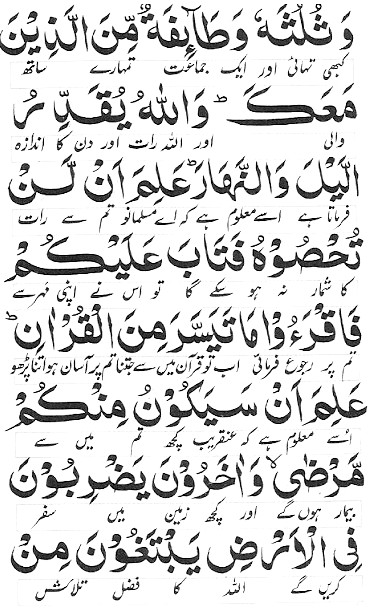 وَثُلُثَهٗ وَطَآئِفَةٌ مِّنَ الَّذِيْنَ
کبھی تہائی اور ایک جماعت تمہارے ساتھ
مَعَكَ ؕ وَاللّٰهُ يُقَدِّرُ
والی اور اللہ رات اور دن کا اندازہ
الَّيْلَ وَالنَّهَارَ ؕ عَلِمَ اَنْ لَّنْ
فرماتا ہے اسے معلوم ہے کہ اے مسلمانو تم سے رات
تُحْصُوْهُ فَتَابَ عَلَيْكُمْ
کا شمار نہ ہو سکے گا تو اس نے اپنی مہر سے
فَاقْرَءُوْا مَا تَيَسَّرَ مِنَ الْقُرْاٰنِ ؕ
تم پر رجوع فرمائی اب تو قرآن میں سے جتنا تم پر آسان ہو اتنا پڑھو
عَلِمَ اَنْ سَيَكُوْنُ مِنْكُمْ
اُسے معلوم ہے کہ عنقریب کچھ تم میں سے
مَّرْضٰى ۙ وَاٰخَرُوْنَ يَضْرِبُوْنَ
بیمار ہوں گے اور کچھ زمین میں سفر
فِى الْاَرْضِ يَبْتَغُوْنَ مِنْ
کریں گے اللہ کا فضل تلاش